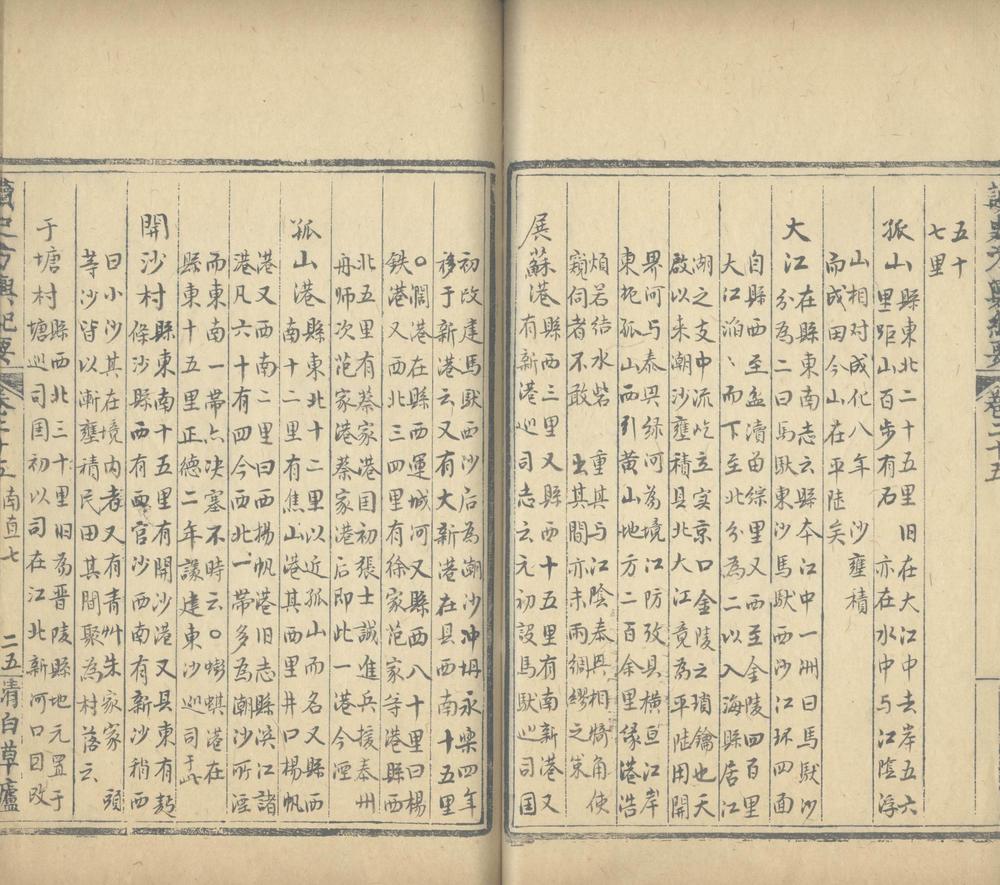 讀史方輿紀要 卷二十五
五十
七里
孤山 縣東北二十五里旧在大江中去岸五六
里距山百步有石 亦在水中与江陰浮
山相对成化八年 沙壅積
而成田今山在平陸矣
大江 在縣東南志云縣本江中一洲曰馬䭾沙
分為二曰馬䭾東沙馬䭾西沙江环四面
自縣西至孟瀆曲綜里又西至金陵四百里
大江滔〻而下至北分為二以入海縣居江
湖之支中流屹立实京口金陵之瑣鑰也天
啟以来潮沙壅積县北大江竟為平陸用開
界河与泰興綠河為境江防攷县横亘江岸
東扼孤山西引黄山地方二百余里缘港浩
煩若结水砦 重其与江陰泰興相犄角使
窺伺者不敢 出其間亦未雨綢繆之策
展蘇港 縣西三里又縣西十五里有南新港又
有新港巡司志云元初設馬䭾巡司国
初改建馬䭾西沙后為潮沙冲坍永樂四年
移于新港云又有大新港在县西南十五里
○闊港在縣西運城河又縣西八十里曰楊
鉄港又西北三四里有徐家范家等港縣西
北五里有蔡家港国初張士誠進兵援泰州
舟师次范家港蔡家港后即此一港今湮
孤山港 縣東北十二里以近孤山而名又縣西
南十二里有焦山港其西里井口楊帆
港又西南二里曰西揚帆港旧志縣浜江諸
港凡六十有四今西北一帶多為潮沙所湮
而東南一帶亦决塞不時云○蟛蜞港在
縣東十五里正德二年議建東沙巡司于此
開沙村 縣東南十五里有開沙港又县東有彭
條沙縣西有西官沙西南有新沙稍西
曰小沙其在境内者又有青艸朱家家頭
等沙皆以漸壅積民田其間聚為村落云
于塘村 縣西北三十里旧為晋陵縣地元置于
塘巡司国初以司在江北新河口因改
讀史方輿紀要 卷二十五 南直七 二五 清白草廬